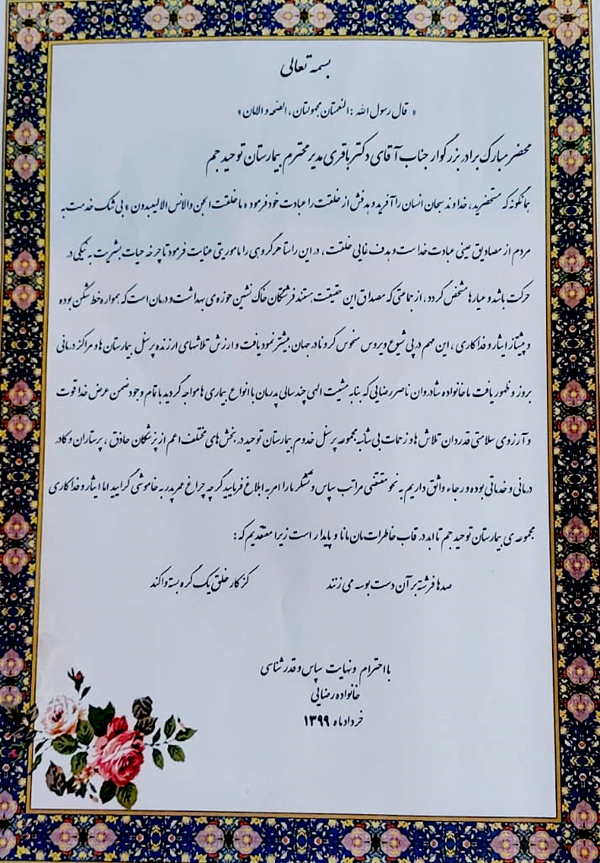 بسمه تعالی
« قال رسول الله : النعمتان مجهولتان ، الصحه و الامان »
محضر مبارک برادر بزرگوار جناب آقای دکتر باقری مدیر محترم بیمارستان توحید جم
همانگونه که مستحضرید، خداوند سبحان انسان را آفرید و هدفش از خلقت را عبادت خود فرمود « ما خلقت الجن و الانس الا لیعبدون » بی شک خدمت به
مردم از مصادیق عینی عبادت خداست و هدف غایی خلقت ، در این راستا هر گروهی را ماموریتی عنایت فرمود تا چرخه حیات بشریت به نیکی در
حرکت باشد و عیارها مشخص گردد ، از جماعتی که مصداق این حقیقت هستند فرشتگان خاک نشین حوزه ی بهداشت و درمان است که همواره خط شکن بوده
و پیشتاز ایثار و فداکاری ، این مهم در پی شیوع ویروس منحوس کرونا در جهان بیشتر نمود یافت و ارزش تلاشهای ارزنده پرسنل بیمارستان ها و مراکز درمانی
بروز و ظهور یافت ما خانواده شادروان ناصر رضایی که بنا به مشیت الهی چند سالی پدرمان با انواع بیماری ها مواجه گردید با تمام وجود ضمن عرض خدا قوت
و آرزوی سلامتی قدردان تلاش ها و زحمات بی شائبه مجموعه پرسنل خدوم بیمارستان توحید در بخش های مختلف اعم از پزشکان حاذق ، پرستاران و کادر
درمانی و خدماتی بوده و رجاء واثق داریم به نحو مقتضی مراتب سپاس و تشکر ما را امر به ابلاغ فرمایید گر چه چراغ عمر پدر به خاموشی گرایید اما ایثار و فداکاری
مجموعه ی بیمارستان توحید جم تا ابد در قاب خاطرات مان مانا و پایدار است زیرا معتقدیم که :
صدها فرشته بر آن دست بوسه می زنند کز کار خلق یک گره بسته وا کند
با احترام و نهایت سپاس و قدرشناسی
خانواده رضایی
خرداد ماه ۱۳۹۹